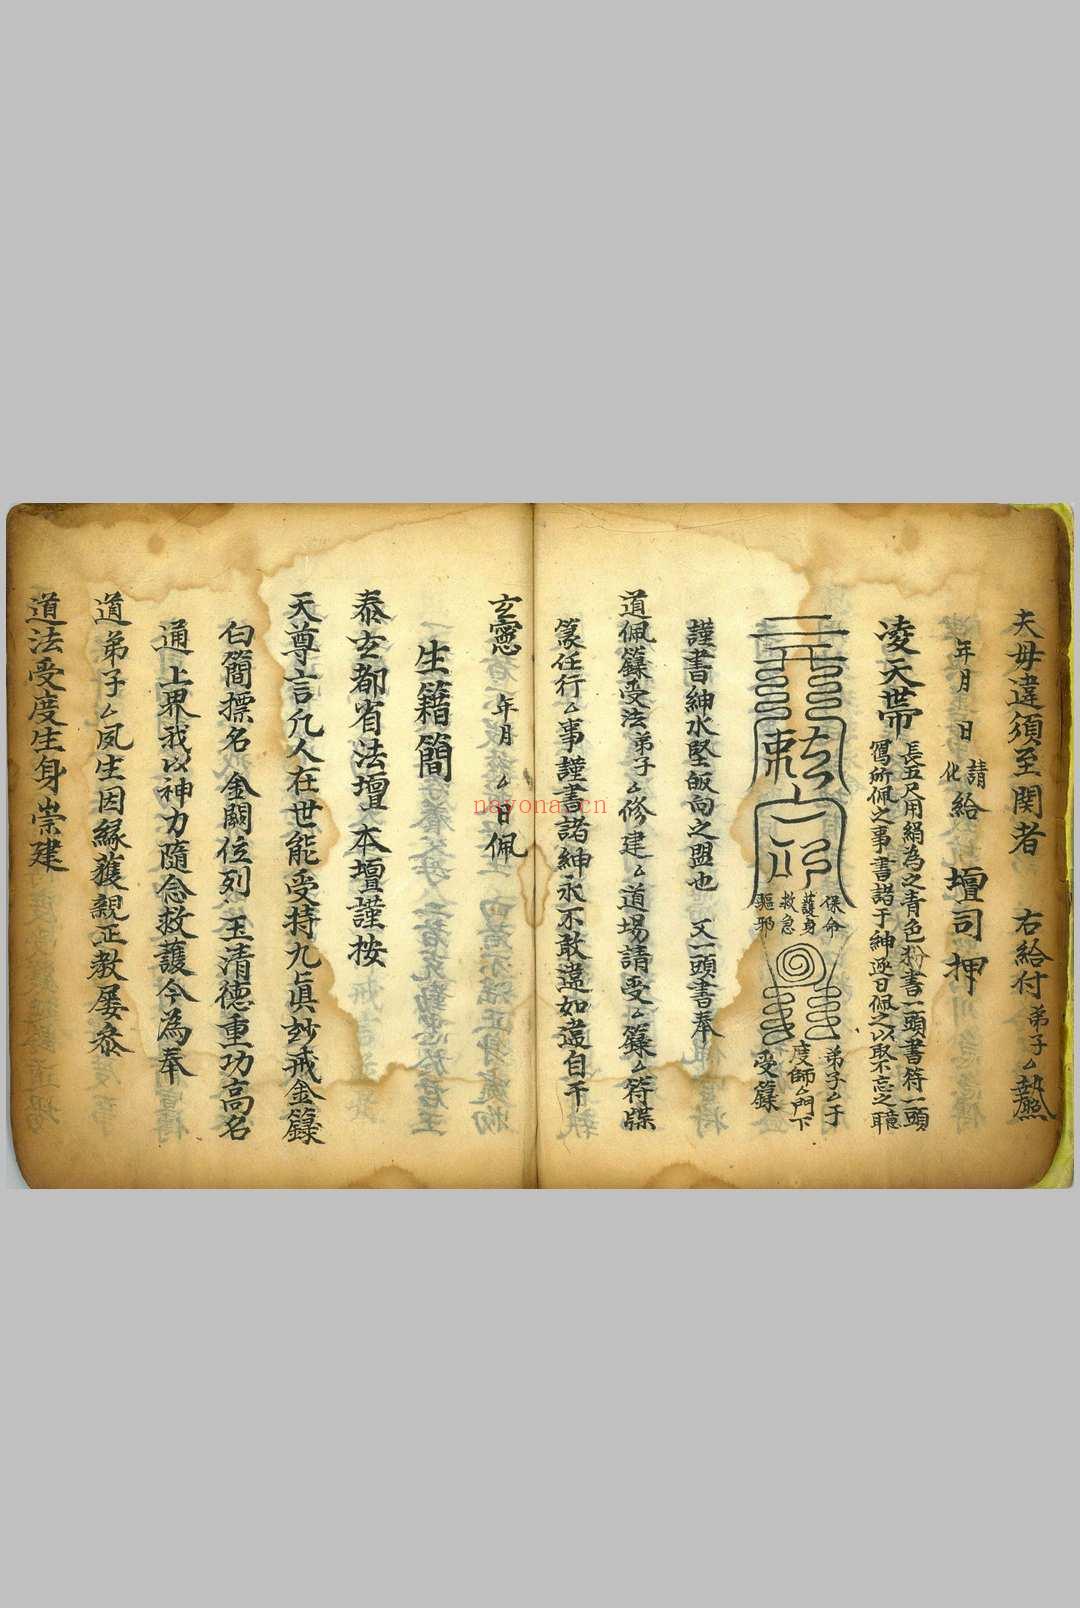 夫毋違須至関者　右給付弟子厶執照
年月　日　請給　壇司押
化
凌天帶
長五尺用絹為之青色粉書一頭書符一頭
寫所佩之事書諸于紳逐日佩之以取不忘之
敕
保命
護身
救急
驅邪
弟子厶于
度師厶門下
受籙
謹書紳永堅皈向之盟也　又一頭書奉
道佩籙受法弟子厶修建厶道場請受厶籙厶符牒
篆任行厶事謹書諸紳永不敢違如違自干
玄憲　年月　厶日佩
生籍簡
泰玄都省法壇　本壇謹按
天尊言凡人在世能受持九真妙戒金籙
白簡摽名　金闕位列　玉清德重功高名
通上界我以神力隨念救護今為奉
道弟子厶夙生因緣獲親正教屢叅
道法受度生身崇建
nayona.cn